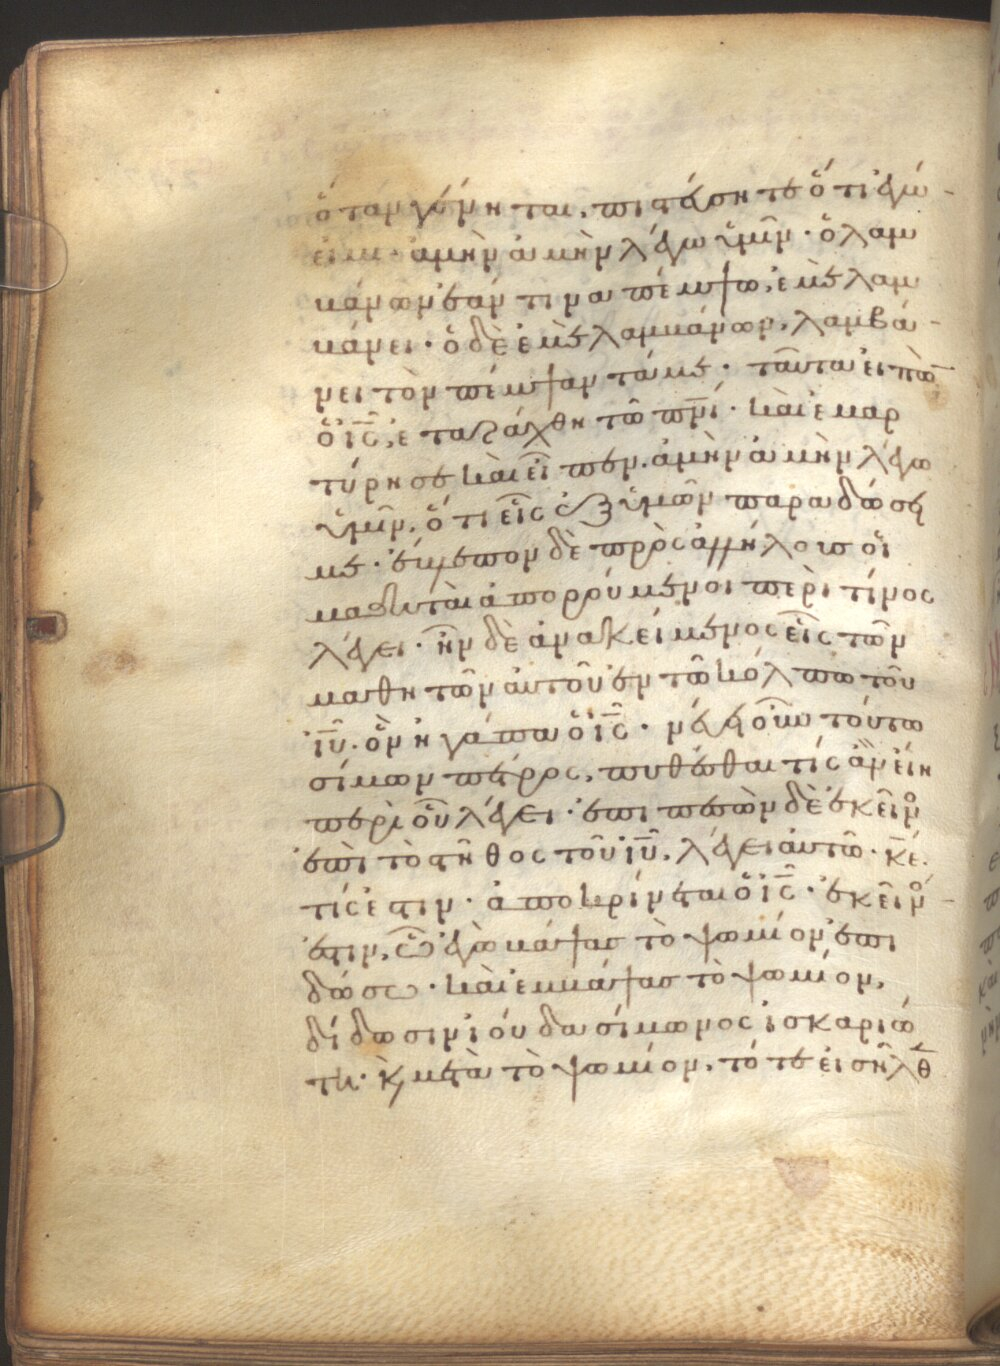 ὅταν γένηται, πιστεύσητε ὅτι ἐγώ
εἰμι· ἀμὴν ἀμὴν λέγω ὑμῖν· ὁ λαμ
βάνων ἐάν τινα πέμψω, ἐμὲ λαμ
βάνει· ὁ δὲ ἐμὲ λαμβάνων, λαμβά
νει τὸν πέμψαντά με· ταῦτα εἰπὼ
ὁ ἰς̅, ἐταράχθη τῶ πνι̅· καὶ ἐμαρ
τύρησε καὶ εἶπεν. ἀμὴν ἀμὴν λέγω
ὑμῖν, ὅτι εἷς ἐξ ὑμῶν παραδώσει
με· ἔβλεπον δὲ πρὸς ἀλλήλους οἱ
μαθηταὶ ἀπορούμενοι περὶ τίνος
λέγει· ἦν δὲ ἀνακείμενος εἷς τῶν
μαθητῶν αὐτοῦ ἐν τῶ κόλπω τοῦ
ἰυ̅· ὃν ἠγάπα ὁ ἰς̅· νεύει οὖν τούτω
σίμων πέτρος, πυθέσθαι τίς ἂν εἴη
περὶ οὗ λέγει· ἐπιπεσὼν δὲ ἐκεῖνο
ἐπὶ τὸ στῆθος τοῦ ἰυ̅, λέγει αὐτῶ· κε̅
τίς ἐστιν· ἀποκρίνεται ὁ ἰς̅· ἐκεῖνό
ἐστιν, ὧ ἐγὼ βάψας τὸ ψωμίον ἐπι
δώσω· καὶ ἐμβάψας τὸ ψωμίον,
δίδωσιν ἰούδα σίμωνος ἰσκαριώ
τη· κ μετὰ τὸ ψωμίον, τότε εἰσῆλθ